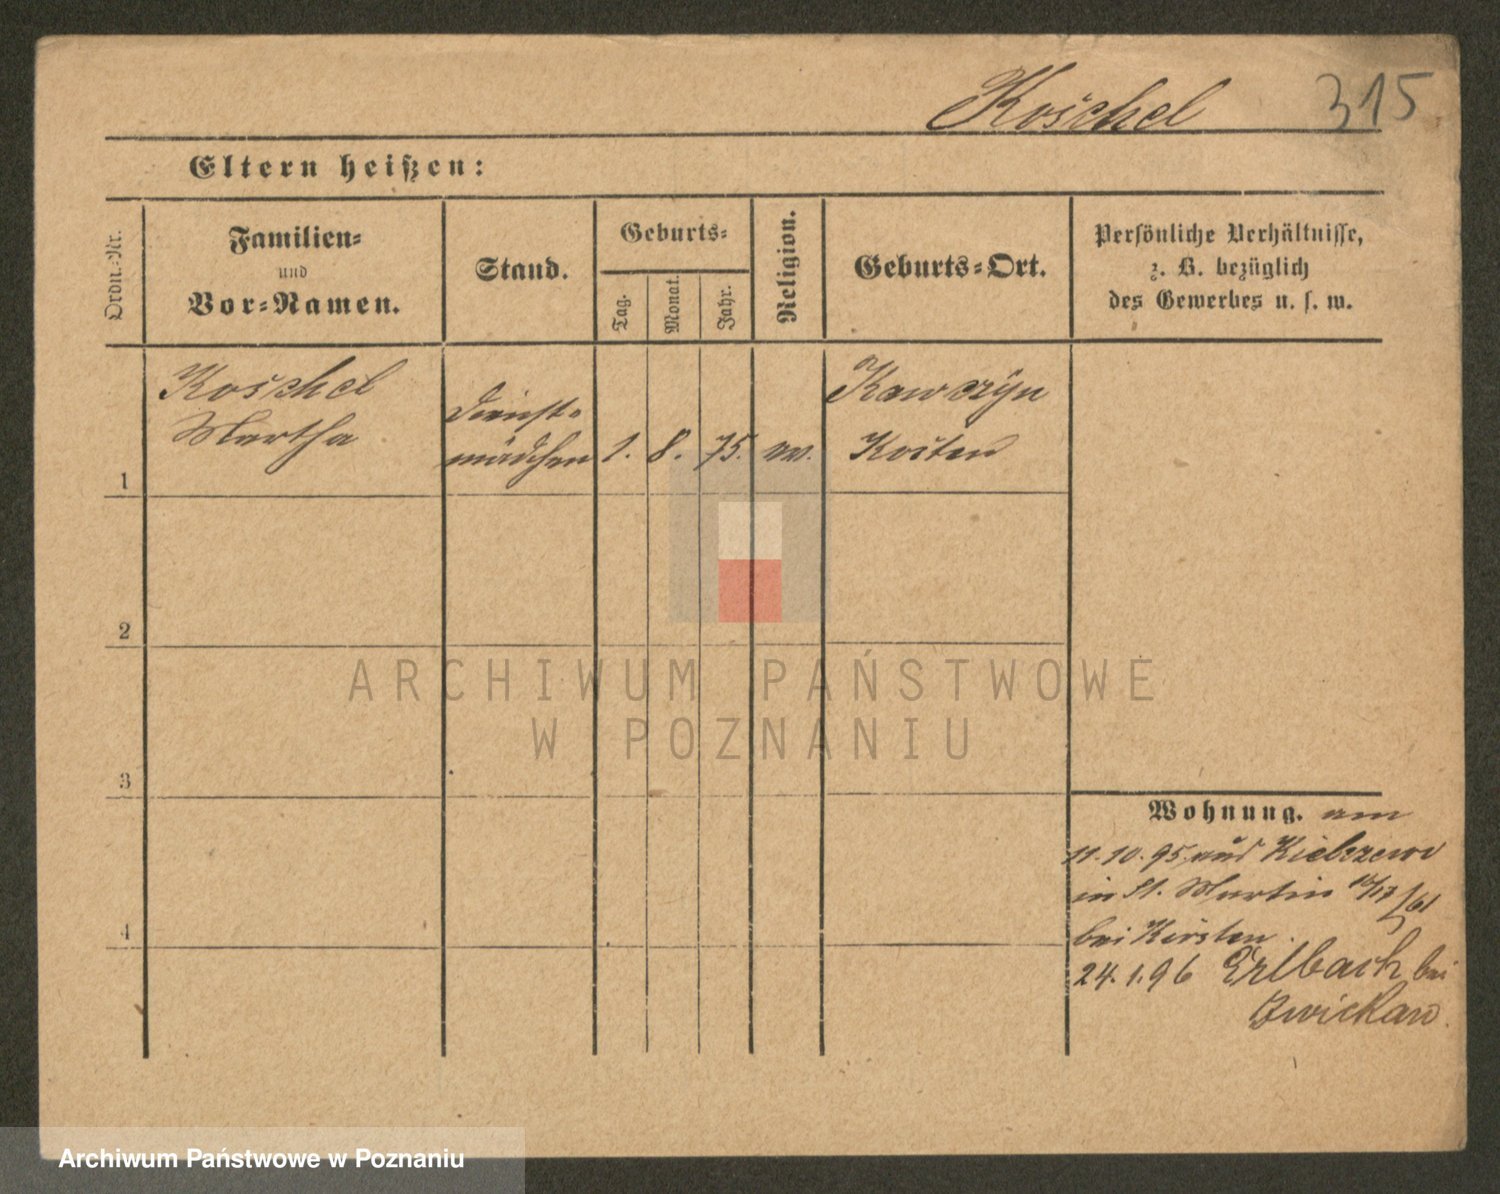 Koschel 315
Eltern heißen:
Ordn.-Nr.
Familien-
und
Vor-Namen.
Stand.
Geburts-
Tag.
Monat.
Jahr.
Religion.
Geburts-Ort.
Persönliche Verhältnisse,
z. B. bezüglich
des Gewerbes u. s. w.
1
Koschel
Martha
Dienst-
mädchen
1. 8. 75. ev.
Kawczyn
Kosten
2
3
4
Wohnung. am
11.10.95 aus Kielczewo
in St. Martin
bei Kirsten.
24.1.96 Erlbach bei
Zwickau.
ARCHIWUM PAŃSTWOWE
W POZNANIU
Archiwum Państwowe w Poznaniu